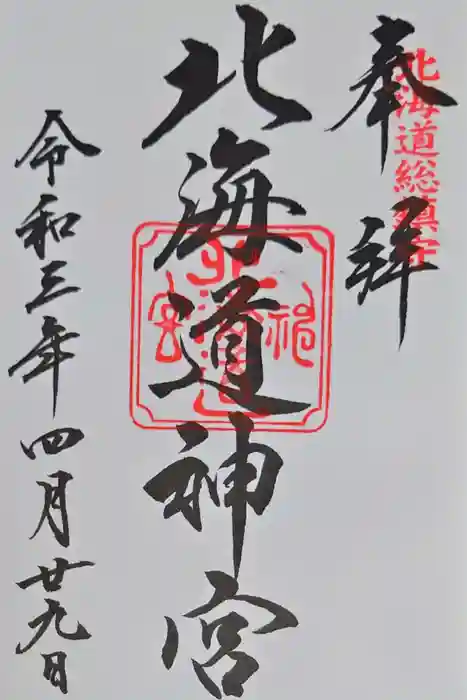 奉拝
北海道総鎮守
北海道神宮
令和三年四月廿九日